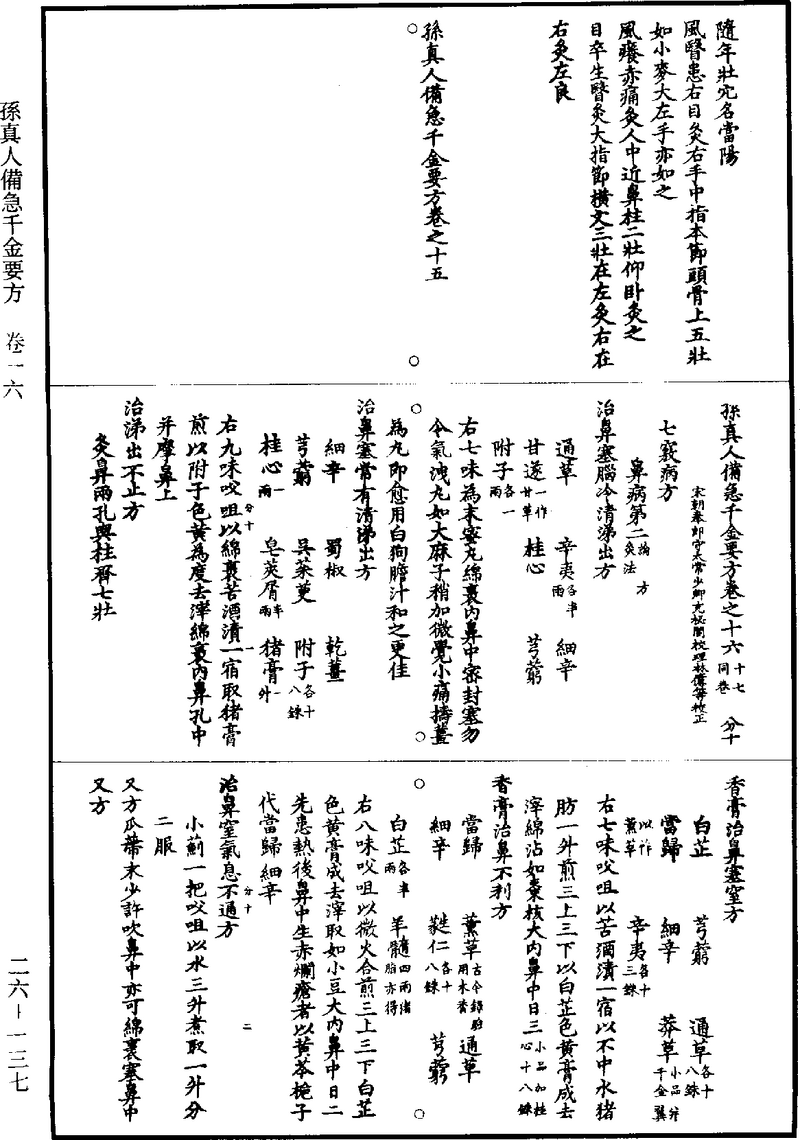 隨年壯穴名當陽
風瞖患右目灸右手中指本節頭骨上五壯
如小麥大左手亦如之
風癢赤痛灸人中近鼻柱二壯仰卧灸之
目卒生瞖灸大指節橫文三壯在左灸右在
右灸左良
孫真人備急千金要方卷之十五
孫真人備急千金要方卷之十六 十七同卷 分十
宋朝奉郎守太常少卿充秘閣校理林億等校正
七竅病方
鼻病第二 論 方 灸法
治鼻塞腦冷清涕出方
通草 辛夷各半兩 細辛
甘遂一作甘草 桂心 芎藭
附子各一兩
右七味為末蜜丸綿裹內鼻中密封塞勿
令氣洩丸如大麻子稍加微覺小痛擣薑
為丸即愈用白狗膽汁和之更佳
治鼻塞常有清涕出方
細辛 蜀椒 乾薑
芎藭 吳茱萸 附子各十八銖
桂心一兩 皂莢屑半兩 豬膏一升
右九味㕮咀以綿裹苦酒漬一宿取豬膏
煎以附子色黃為度去滓綿裹內鼻孔中
并摩鼻上
治涕出不止方
灸鼻兩孔與柱齊七壯
香膏治鼻塞窒方
白芷 芎藭 通草各十八銖
當歸 細辛 莽草小品并千金翼
以作薰草 辛夷各十三銖
右七味㕮咀以苦酒漬一宿以不中水豬
肪一升煎三上三下以白芷色黃膏成去
滓綿沾如棗核大內鼻中日三小品加桂心十八銖
香膏治鼻不利方
當歸 薰草古今錄驗用木香 通草
細辛 蕤仁各十八銖 芎藭
白芷各半兩 羊髓四兩豬脂亦得
右八味㕮咀以微火合煎三上三下白芷
色黃膏成去滓取如小豆大內鼻中日二
先患熱後鼻中生赤爛瘡者以黃芩梔子
代當歸細辛
治鼻窒氣息不通方
小薊一把㕮咀以水三升煮取一升分
二服
又方瓜蒂末少許吹鼻中亦可綿裹塞鼻中
又方
分十 一
分十 二
孫真人備急千金要方 卷一六
二六－一三七